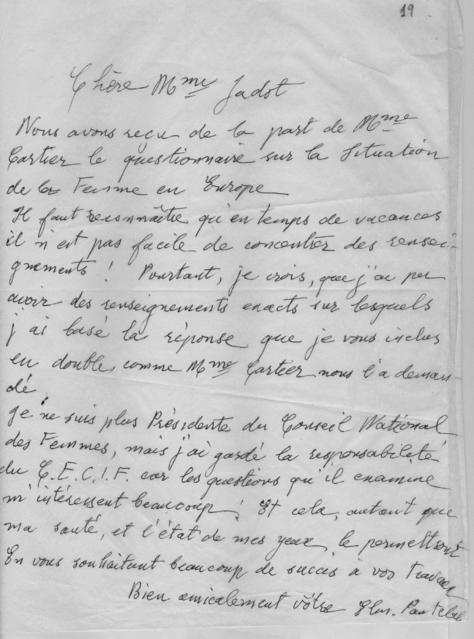 19
Chère Mme Jadot
Nous avons reçu de la part de Mme
Cartier le questionnaire sur la Situation
de la Femme en Europe
Il faut reconnaître qu'en temps de vacances
il n'est pas facile de concentrer des rensei-
gnements ! Pourtant, je crois, que j'ai pu
avoir des renseignements exacts sur lesquels
j'ai base la réponse que je vous inclus
en double, comme Mme Cartier nous l'a deman-
dé.
Je ne suis plus Présidente du Conseil National
des Femmes, mais j'ai gardé la responsabilité
du C.E.C.I.F. car les questions qu'il examine
m'intéressent beaucoup ! Et cela, autant que
ma santé, et l'état de mes yeux, le permettront
En vous souhaitant beaucoup de succes a vos travaux
Bien amicalement vôtre